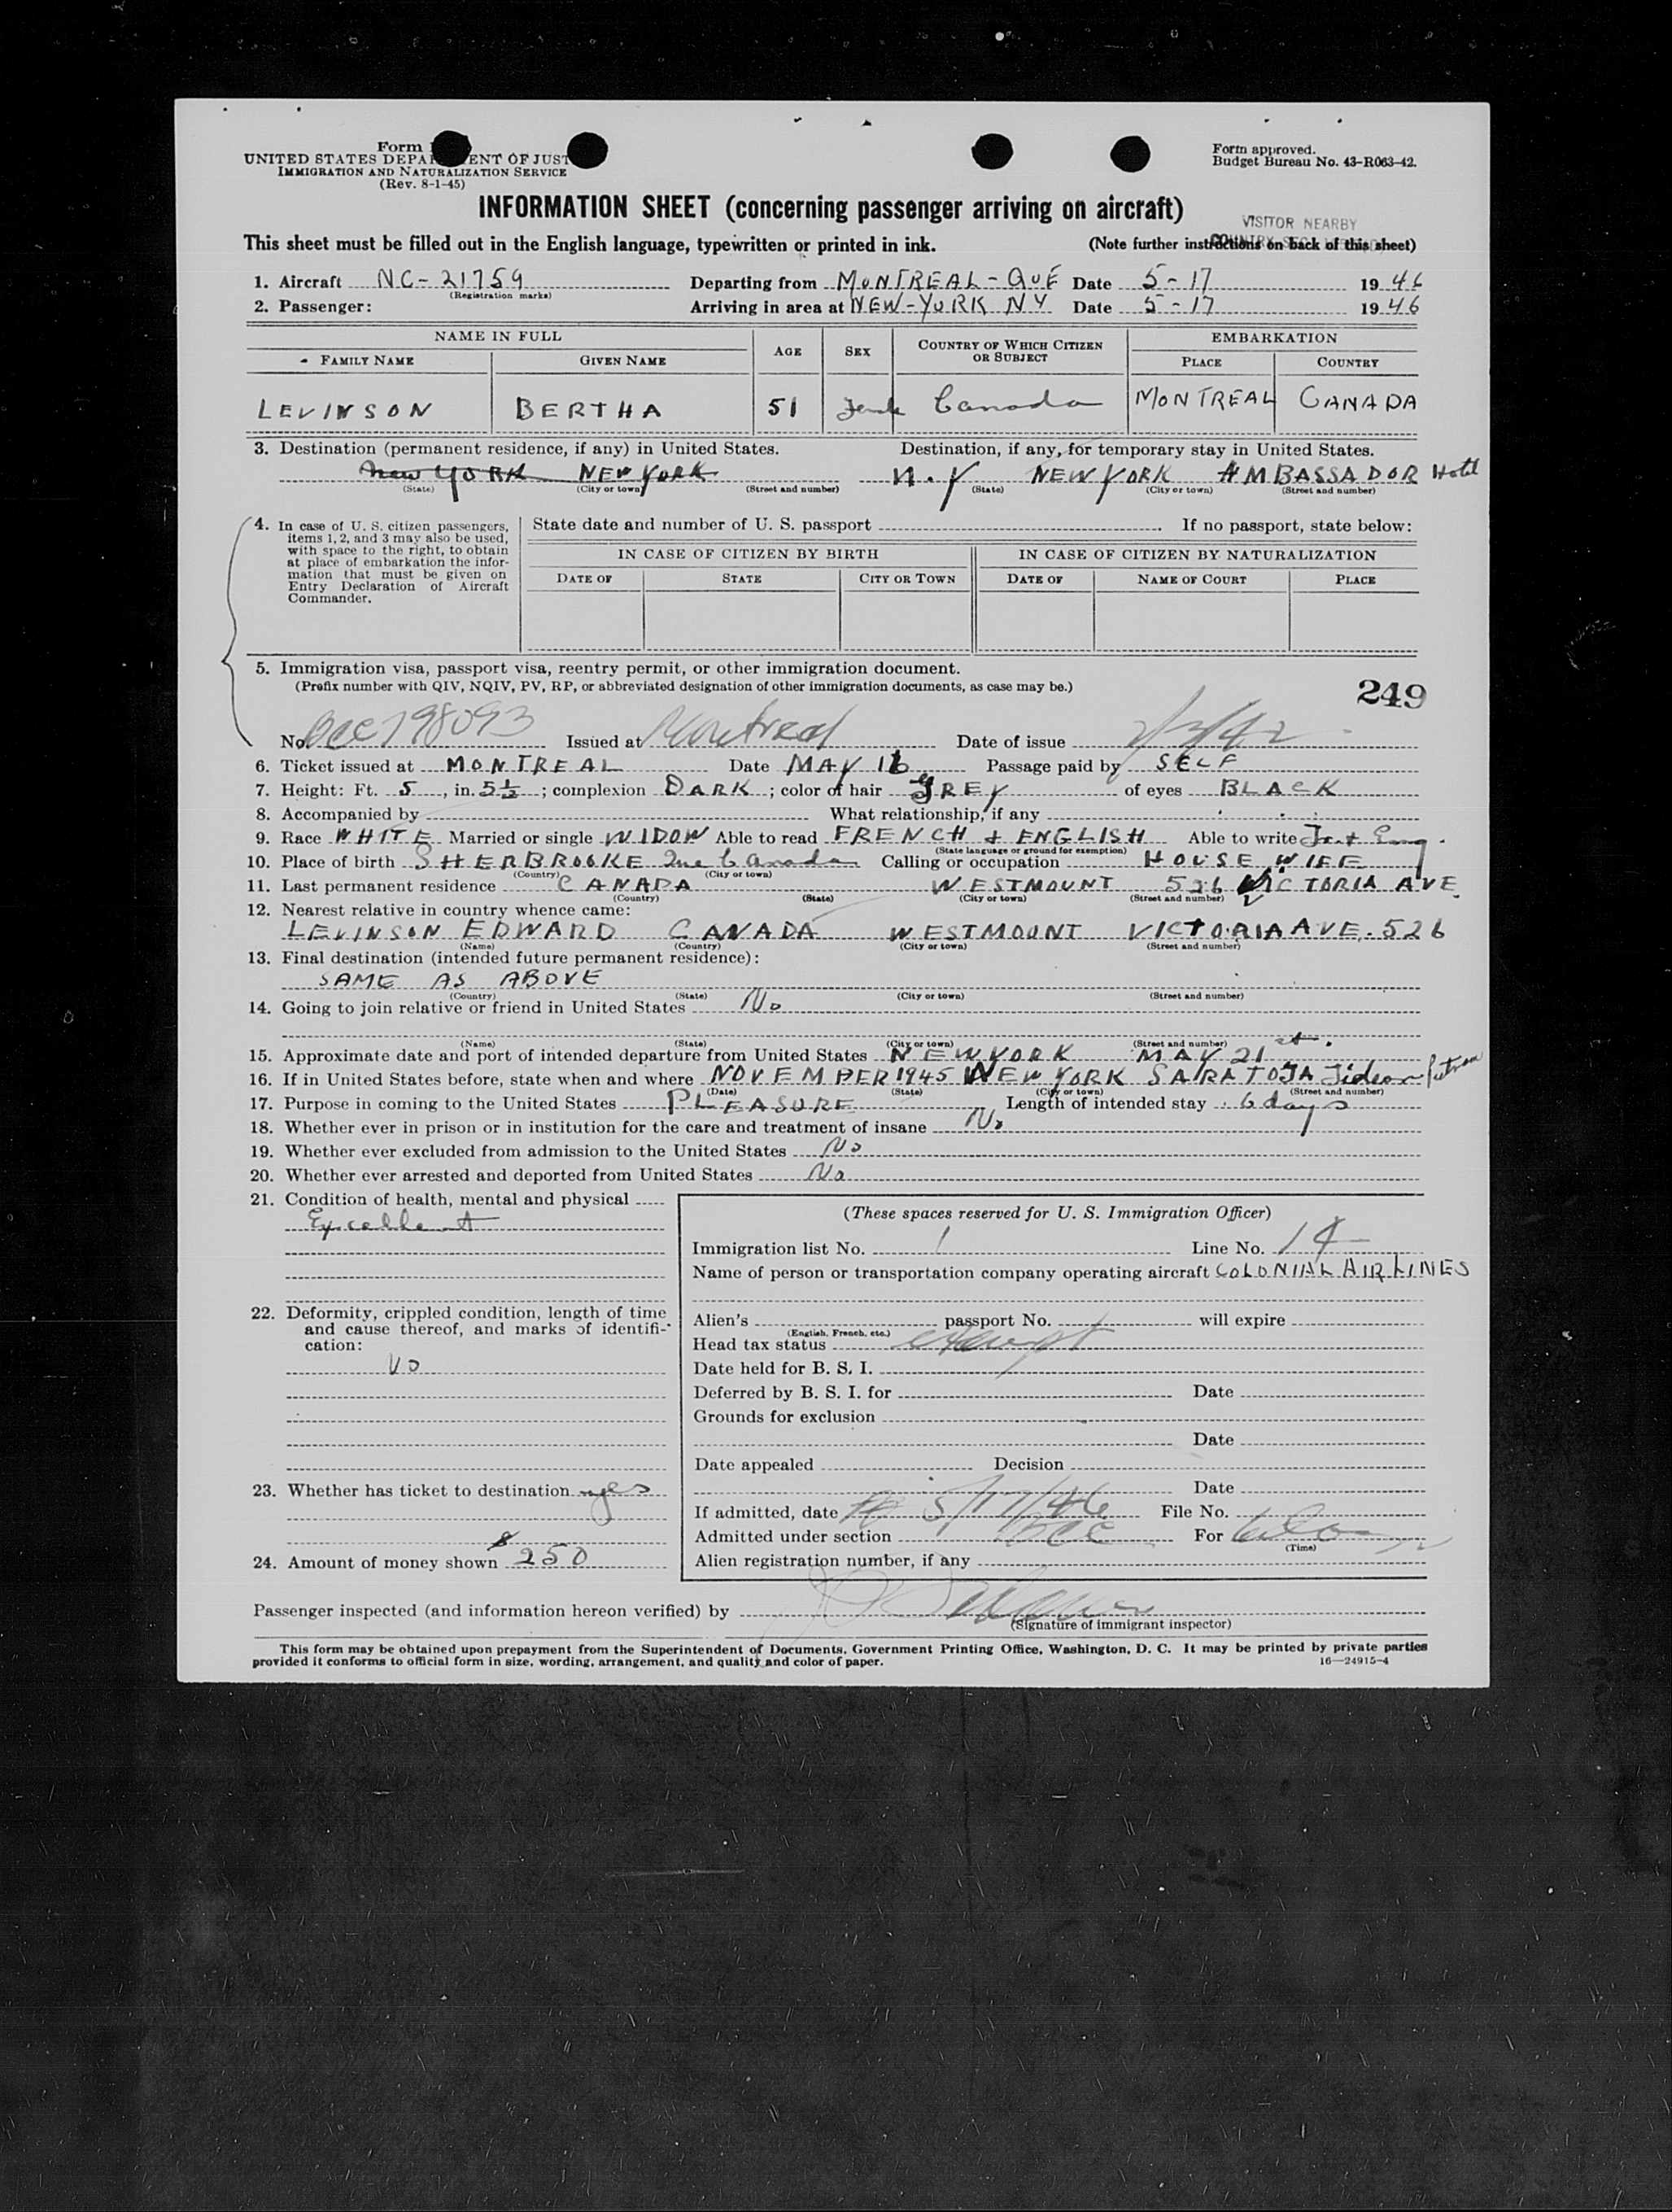 Form
UNITED STATES DEPA ENT OF JUST
IMMIGRATION AND NATURALIZATION SERVICE
(Rev. 8-1-45)
Form approved.
Budget Bureau No. 43-R063-42.
INFORMATION SHEET (concerning passenger arriving on aircraft)
VISITOR NEARBY
This sheet must be filled out in the English language, typewritten or printed in ink. (Note further instructions on back of this sheet)
1. Aircraft NC-21759 Departing from MONTREAL-QUE Date 5-17 1946
(Registration marks)
2. Passenger: Arriving in area at NEW-YORK NY Date 5-17 1946
NAME IN FULL AGE SEX COUNTRY OF WHICH CITIZEN OR SUBJECT EMBARKATION
FAMILY NAME GIVEN NAME PLACE COUNTRY
LEVINSON BERTHA 51 Female Canada MONTREAL CANADA
3. Destination (permanent residence, if any) in United States. Destination, if any, for temporary stay in United States.
New YORK NEW YORK N.Y NEW YORK AMBASSADOR Hotel
(State) (City or town) (Street and number) (State) (City or town) (Street and number)
4. In case of U. S. citizen passengers, items 1, 2, and 3 may also be used, with space to the right, to obtain at place of embarkation the information that must be given on Entry Declaration of Aircraft Commander.
State date and number of U. S. passport If no passport, state below:
IN CASE OF CITIZEN BY BIRTH IN CASE OF CITIZEN BY NATURALIZATION
DATE OF STATE CITY OR TOWN DATE OF NAME OF COURT PLACE
5. Immigration visa, passport visa, reentry permit, or other immigration document.
(Prefix number with QIV, NQIV, PV, RP, or abbreviated designation of other immigration documents, as case may be.)
249
No. BCC798093 Issued at Montreal Date of issue 2/3/42
6. Ticket issued at MONTREAL Date MAY 16 Passage paid by SELF
7. Height: Ft. 5, in. 5½; complexion DARK; color of hair GREY of eyes BLACK
8. Accompanied by What relationship, if any
9. Race WHITE Married or single WIDOW Able to read FRENCH & ENGLISH Able to write Fr. + Eng.
(State language or ground for exemption)
10. Place of birth SHERBROOKE Que Canada Calling or occupation HOUSE WIFE
(Country) (City or town)
11. Last permanent residence CANADA WESTMOUNT 526 VICTORIA AVE.
(Country) (State) (City or town) (Street and number)
12. Nearest relative in country whence came:
LEVINSON EDWARD CANADA WESTMOUNT VICTORIA AVE. 526
(Name) (Country) (City or town) (Street and number)
13. Final destination (intended future permanent residence):
SAME AS ABOVE
(Country) (State) (City or town) (Street and number)
14. Going to join relative or friend in United States No
(Name) (State) (City or town) (Street and number)
15. Approximate date and port of intended departure from United States NEW YORK MAY 21st.
16. If in United States before, state when and where NOVEMBER 1945 NEW YORK SARATOGA Gideon Putnam
(Date) (State) (City or town) (Street and number)
17. Purpose in coming to the United States PLEASURE Length of intended stay 6 days
18. Whether ever in prison or in institution for the care and treatment of insane No
19. Whether ever excluded from admission to the United States No
20. Whether ever arrested and deported from United States No
21. Condition of health, mental and physical
Excellent
22. Deformity, crippled condition, length of time and cause thereof, and marks of identification:
NO
23. Whether has ticket to destination yes
24. Amount of money shown $250
(These spaces reserved for U. S. Immigration Officer)
Immigration list No. 1 Line No. 14
Name of person or transportation company operating aircraft COLONIAL AIRLINES
Alien's passport No. will expire
(English, French, etc.)
Head tax status exempt
Date held for B. S. I.
Deferred by B. S. I. for Date
Grounds for exclusion
Date
Date appealed Decision
Date
If admitted, date 5/17/46 File No.
Admitted under section BCC For
(Time)
Alien registration number, if any
Passenger inspected (and information hereon verified) by
(Signature of immigrant inspector)
This form may be obtained upon prepayment from the Superintendent of Documents, Government Printing Office, Washington, D. C. It may be printed by private parties
provided it conforms to official form in size, wording, arrangement, and quality and color of paper. 16—24915-4